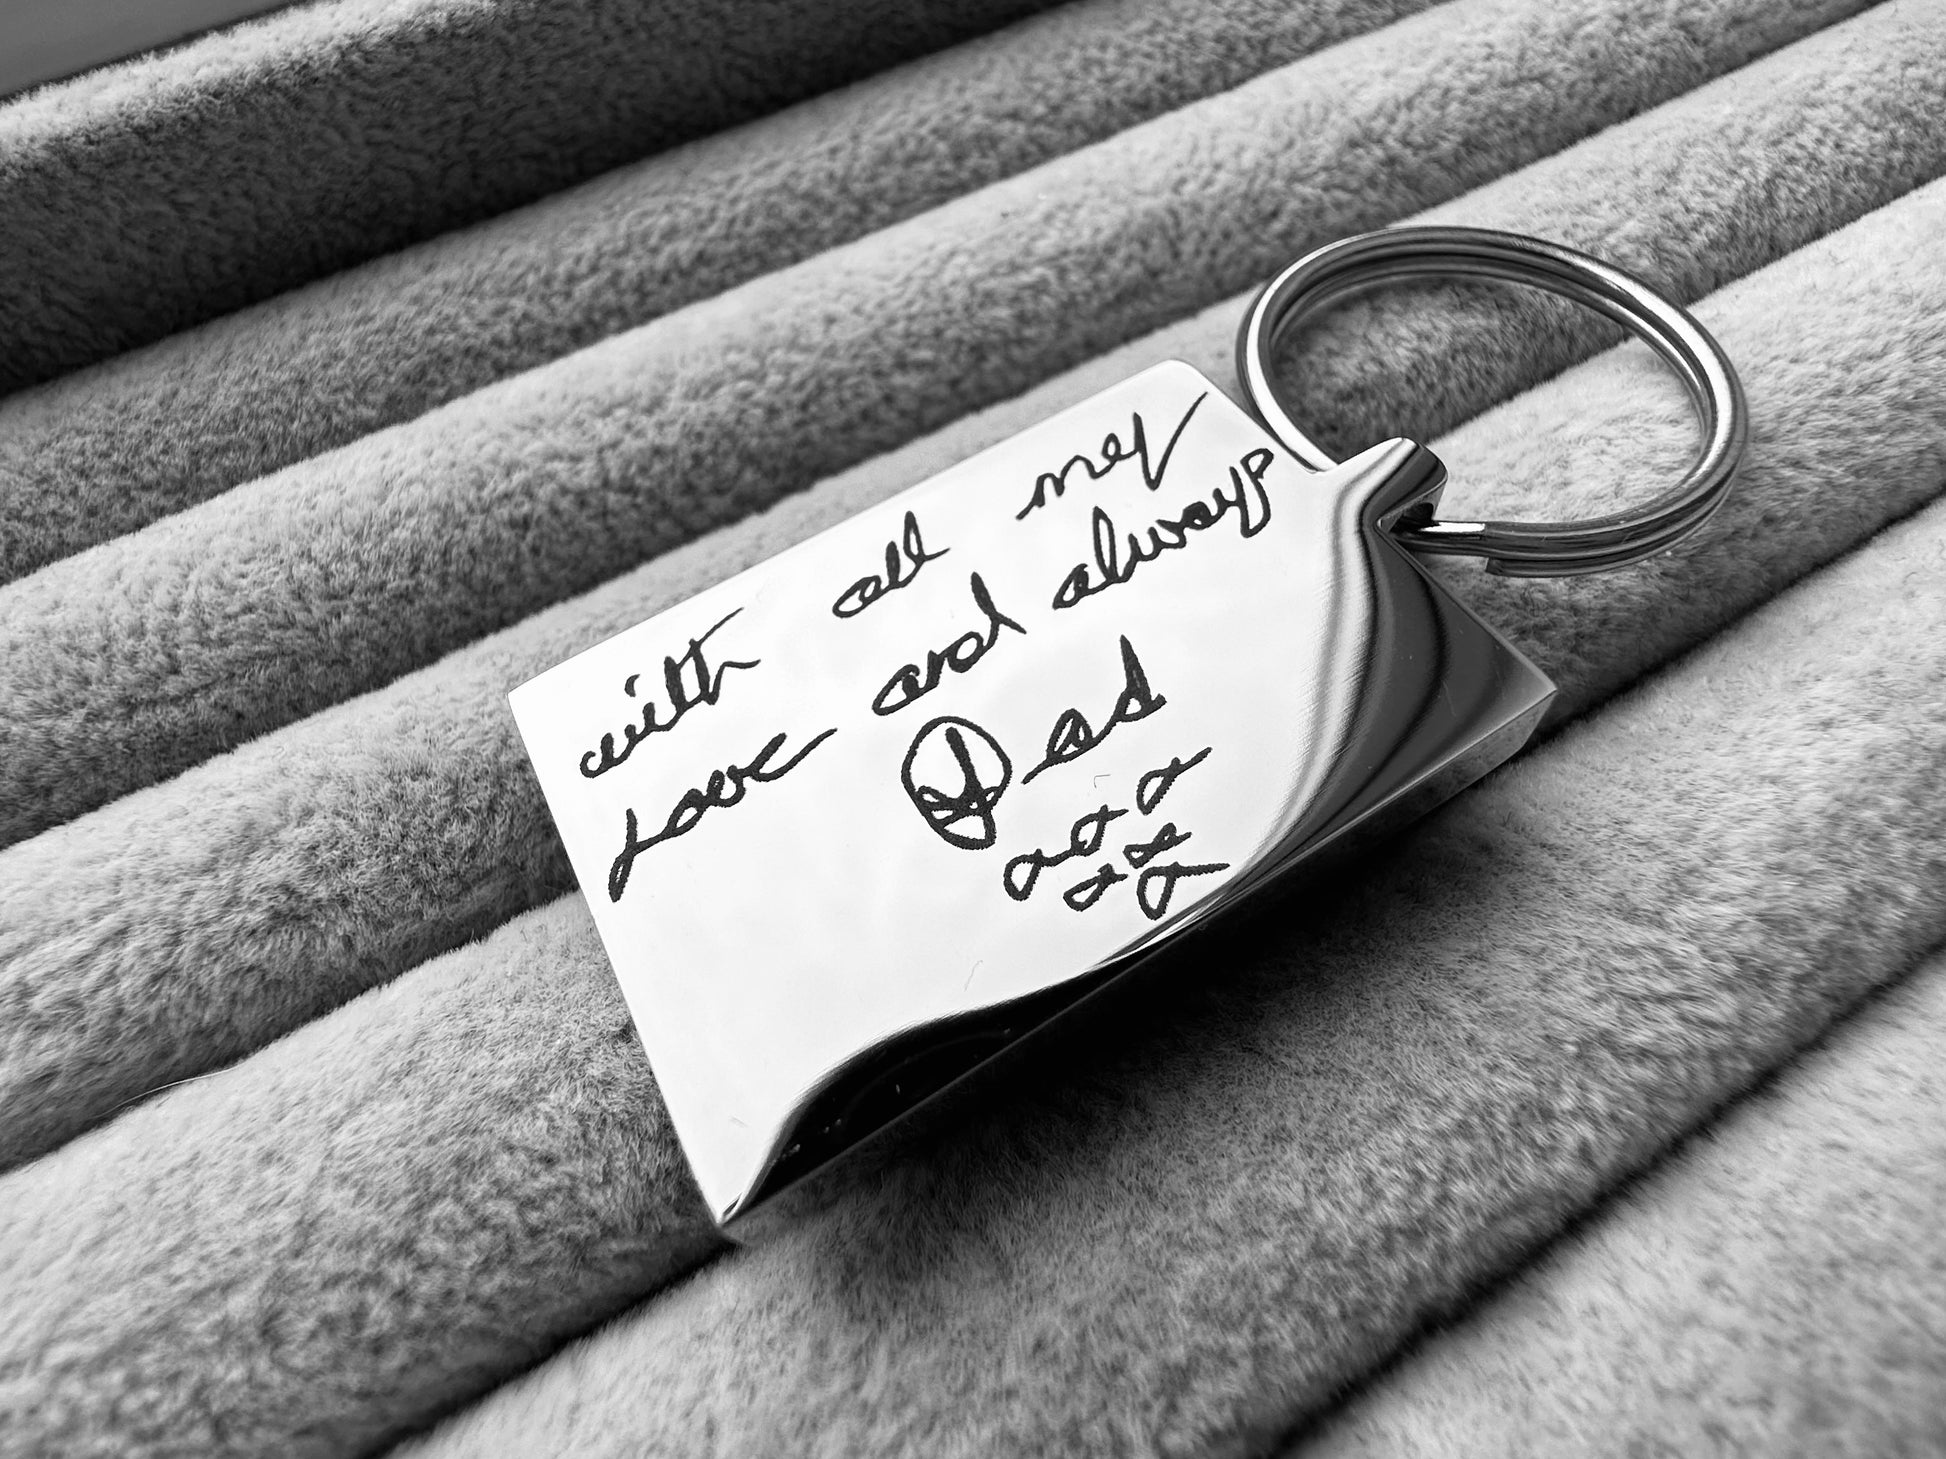 with all my
Love and always
Dad
x x x
x x
x